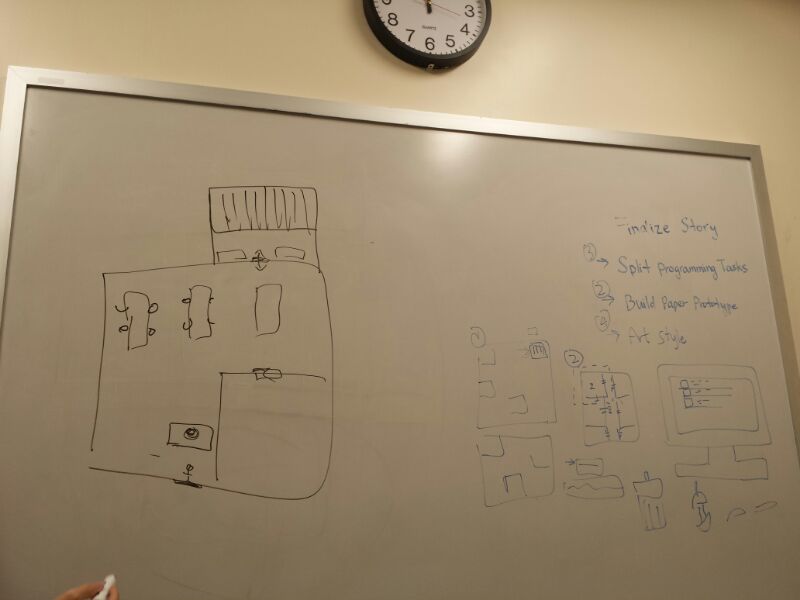 8
7
6
5
4
3
QUARTZ
Finalize Story
3 → Split Programming Tasks
2 → Build Paper Prototype
→ Art Style
1
2